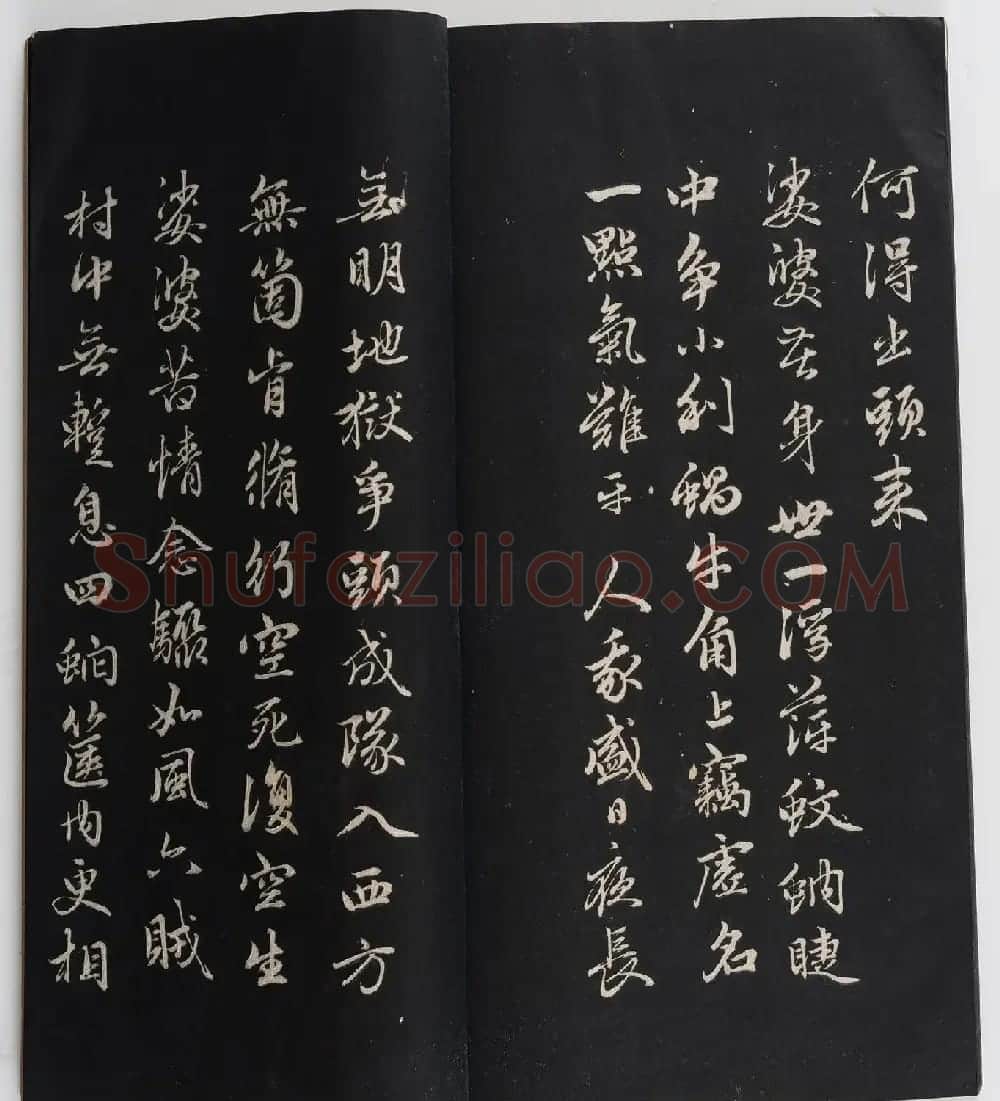 何得出頭来
娑婆苦身世一浮萍蚊蚋睫
中争小利蝸牛角上竊虚名
一點氣難平 人我盛日夜長
無明地獄争頭成隊入西方
無箇肯脩行空死復空生
娑婆苦情念驟如風六賊
村中無蹔息四蛇篋内更相
Shufaziliao.COM